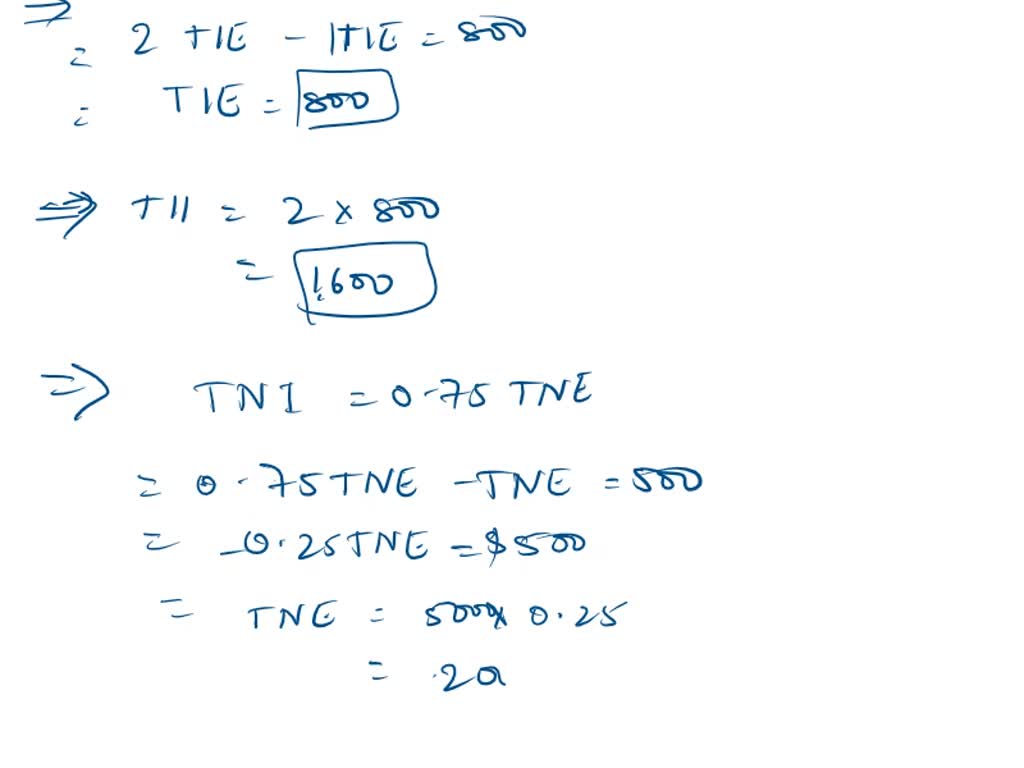 ⇒
= 2 TIE - 1TIE = 800
= TIE = 800
⇒ TII = 2 x 800
= 1600
⇒ TNI = 0.75 TNE
= 0.75TNE - TNE = 500
= -0.25TNE = $500
= TNE = 500x 0.25
=